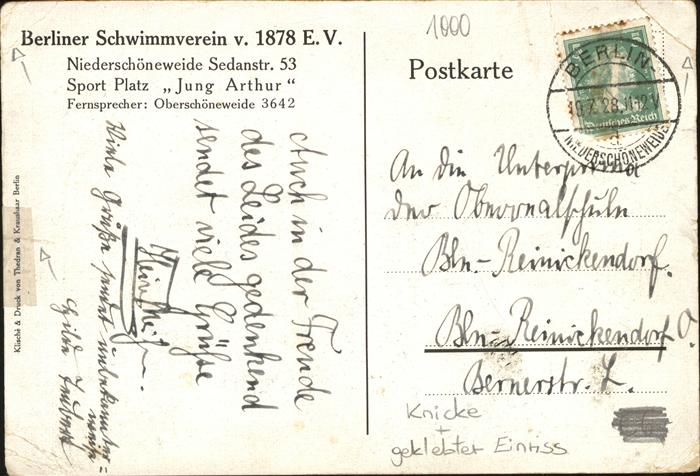 Berliner Schwimmverein v. 1878 E. V.
Niederschöneweide Sedanstr. 53
Sport Platz „Jung Arthur“
Fernsprecher: Oberschöneweide 3642
1000
Postkarte
BERLIN-
10.7.28.11-12V
a
NIEDERSCHÖNEWEIDE
Deutsches Reich
An die
der Oberrealschule
Bln-Reinickendorf.
Bln-Reinickendorf O.
Bernerstr.
Knicke
+
geklebter Einriss
Auch in der Freude
des Leides gedenkend
sendet viele Grüße
Viele Grüße sendet unbekannter=
Klischi & Druck von Thedran & Kraushaar Berlin